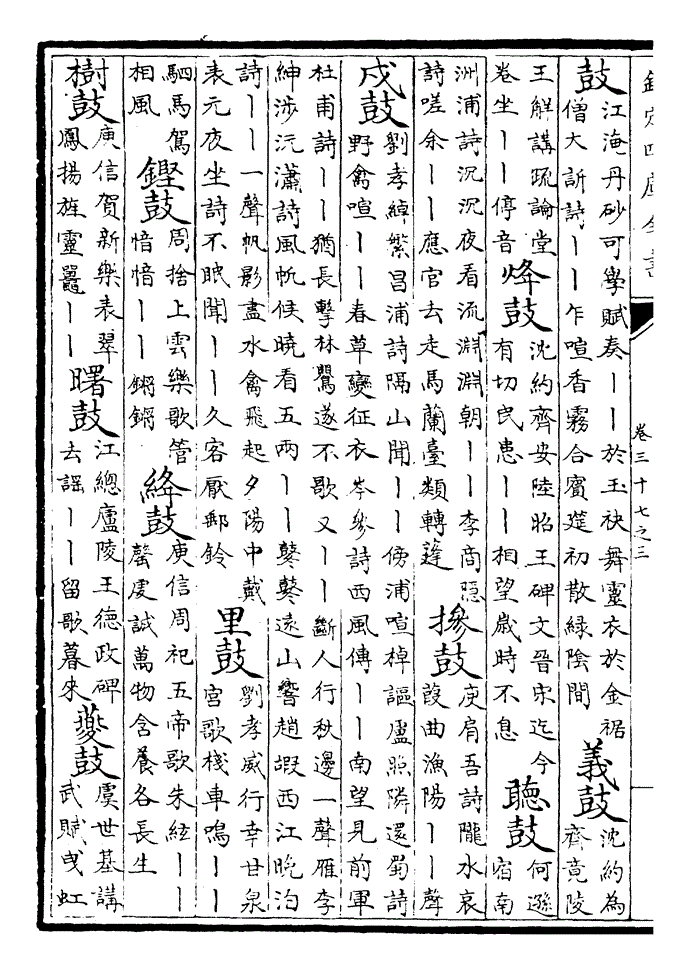 欽定四庫全書
卷三十七之三
鼓江淹丹砂可學賦奏丨丨於玉袂舞靈衣於金裾
僧大訢詩丨丨乍喧香霧合賓筵初散綠陰間
義鼓沈約為
齊竟陵
王解講疏論堂
卷坐丨丨停音
烽鼓沈約齊安陸昭王碑文晉宋迄今
有切民患丨丨相望歲時不息
聽鼓何遜
宿南
洲浦詩沉沉夜看流淵淵朝丨丨李商隱
詩嗟余丨丨應官去走馬蘭臺類轉蓬
摻鼓庾肩吾詩隴水哀
葭曲漁陽丨丨聲
戍鼓劉孝綽繁昌浦詩隔山聞丨丨傍浦喧棹謳盧照隣還蜀詩
野禽喧丨丨春草變征衣岑參詩西風傳丨丨南望見前軍
杜甫詩丨丨猶長擊林鶯遂不歌又丨丨斷人行秋邊一聲雁李
紳涉沅瀟詩風帆候曉看五兩丨丨鼕鼕遠山響趙嘏西江晚泊
詩丨丨一聲帆影盡水禽飛起夕陽中戴
表元夜坐詩不眠聞丨丨久客厭郵鈴
里鼓劉孝威行幸甘泉
宮歌棧車鳴丨丨
駟馬駕
相風
鏗鼓周捨上雲樂歌管
愔愔丨丨鏘鏘
絳鼓庾信周祀五帝歌朱絃丨丨
罄虔誠萬物含養各長生
樹鼓庾信賀新樂表翠
鳳揚旌靈鼉丨丨
曙鼓江總廬陵王德政碑
去謡丨丨留歌暮來
夔鼓虞世基講
武賦曳虹